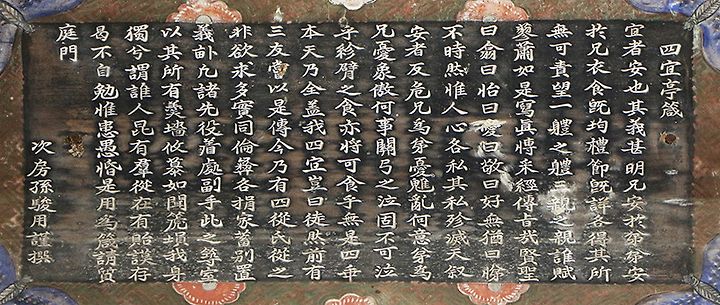 四宜亭箴
宜者安也其義甚明兄安於弟弟安
於兄衣食旣均禮節旣詳各得其所
無可責望一軆之軆三親之親誰賦
蓼蕭如是寫眞博采經傳古哉賢聖
曰翕曰怡曰愛曰敬曰好無猶曰
不時然惟人心各私其私殄滅天叙
安者反危兄爲弟憂魋亂何意弟爲
兄憂象傲何事關弓之泣固不可泣
乎紾臂之食亦將可食乎無是四乎
本天乃全盖我四宜豈曰徒然前有
三友嘗以是傳今乃有四從氏從之
非欲求多實同倫彛各捐家蓄別置
義凡諸先役着處副手此之尊室
以其所有羹墻攸慕如聞篪塤我身
獨兮謂誰人昆有羣從在有貽謨存
曷不自勉惟患愚惛是用爲箴請質
庭門
次房孫駿用謹撰